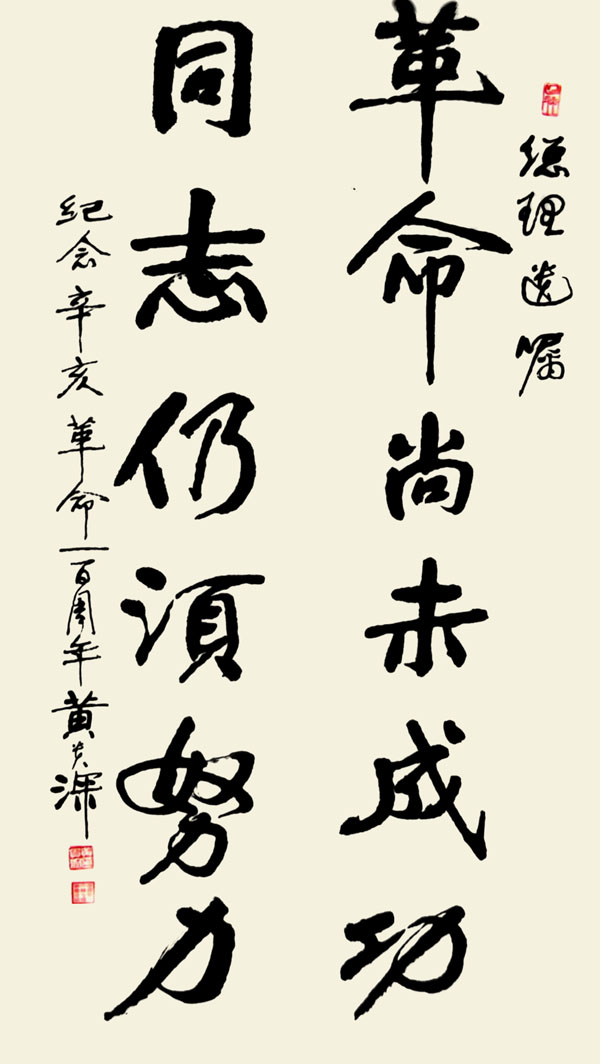 總理遗嘱
革命尚未成功
同志仍須努力
纪念辛亥革命一百周年黄深